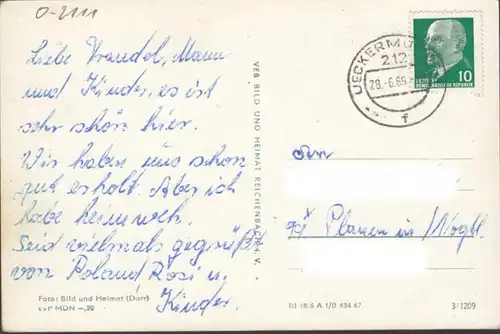 0-2111
Liebe Traudel, Mann
und Kinder, es ist
sehr schön hier.
Wir haben uns schon
gut erholt. Aber ich
habe heimweh.
Seid vielmals gegrüßt
von Roland Rosi u.
Kinder.
Foto: Bild und Heimat (Darr)
EVP MDN –,20
VEB BILD UND HEIMAT REICHENBACH i. V.
UECKERMÜ
212
28.-6.69
f
10
DEUTSCHE
DEMOKRATISCHE REPUBLIK
An
Plauen in Vogtl.
III 18/6 A 1/B 434.67
3/1209